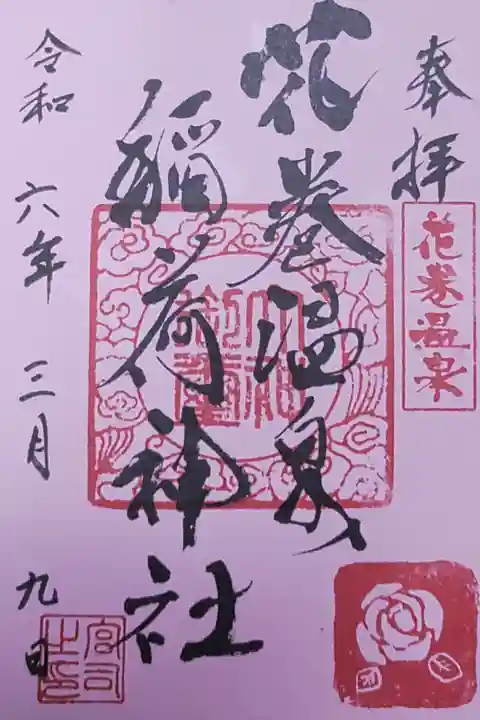 奉拝
花巻温泉
花巻温泉
稲荷神社
令和六年三月九日
宮司之印